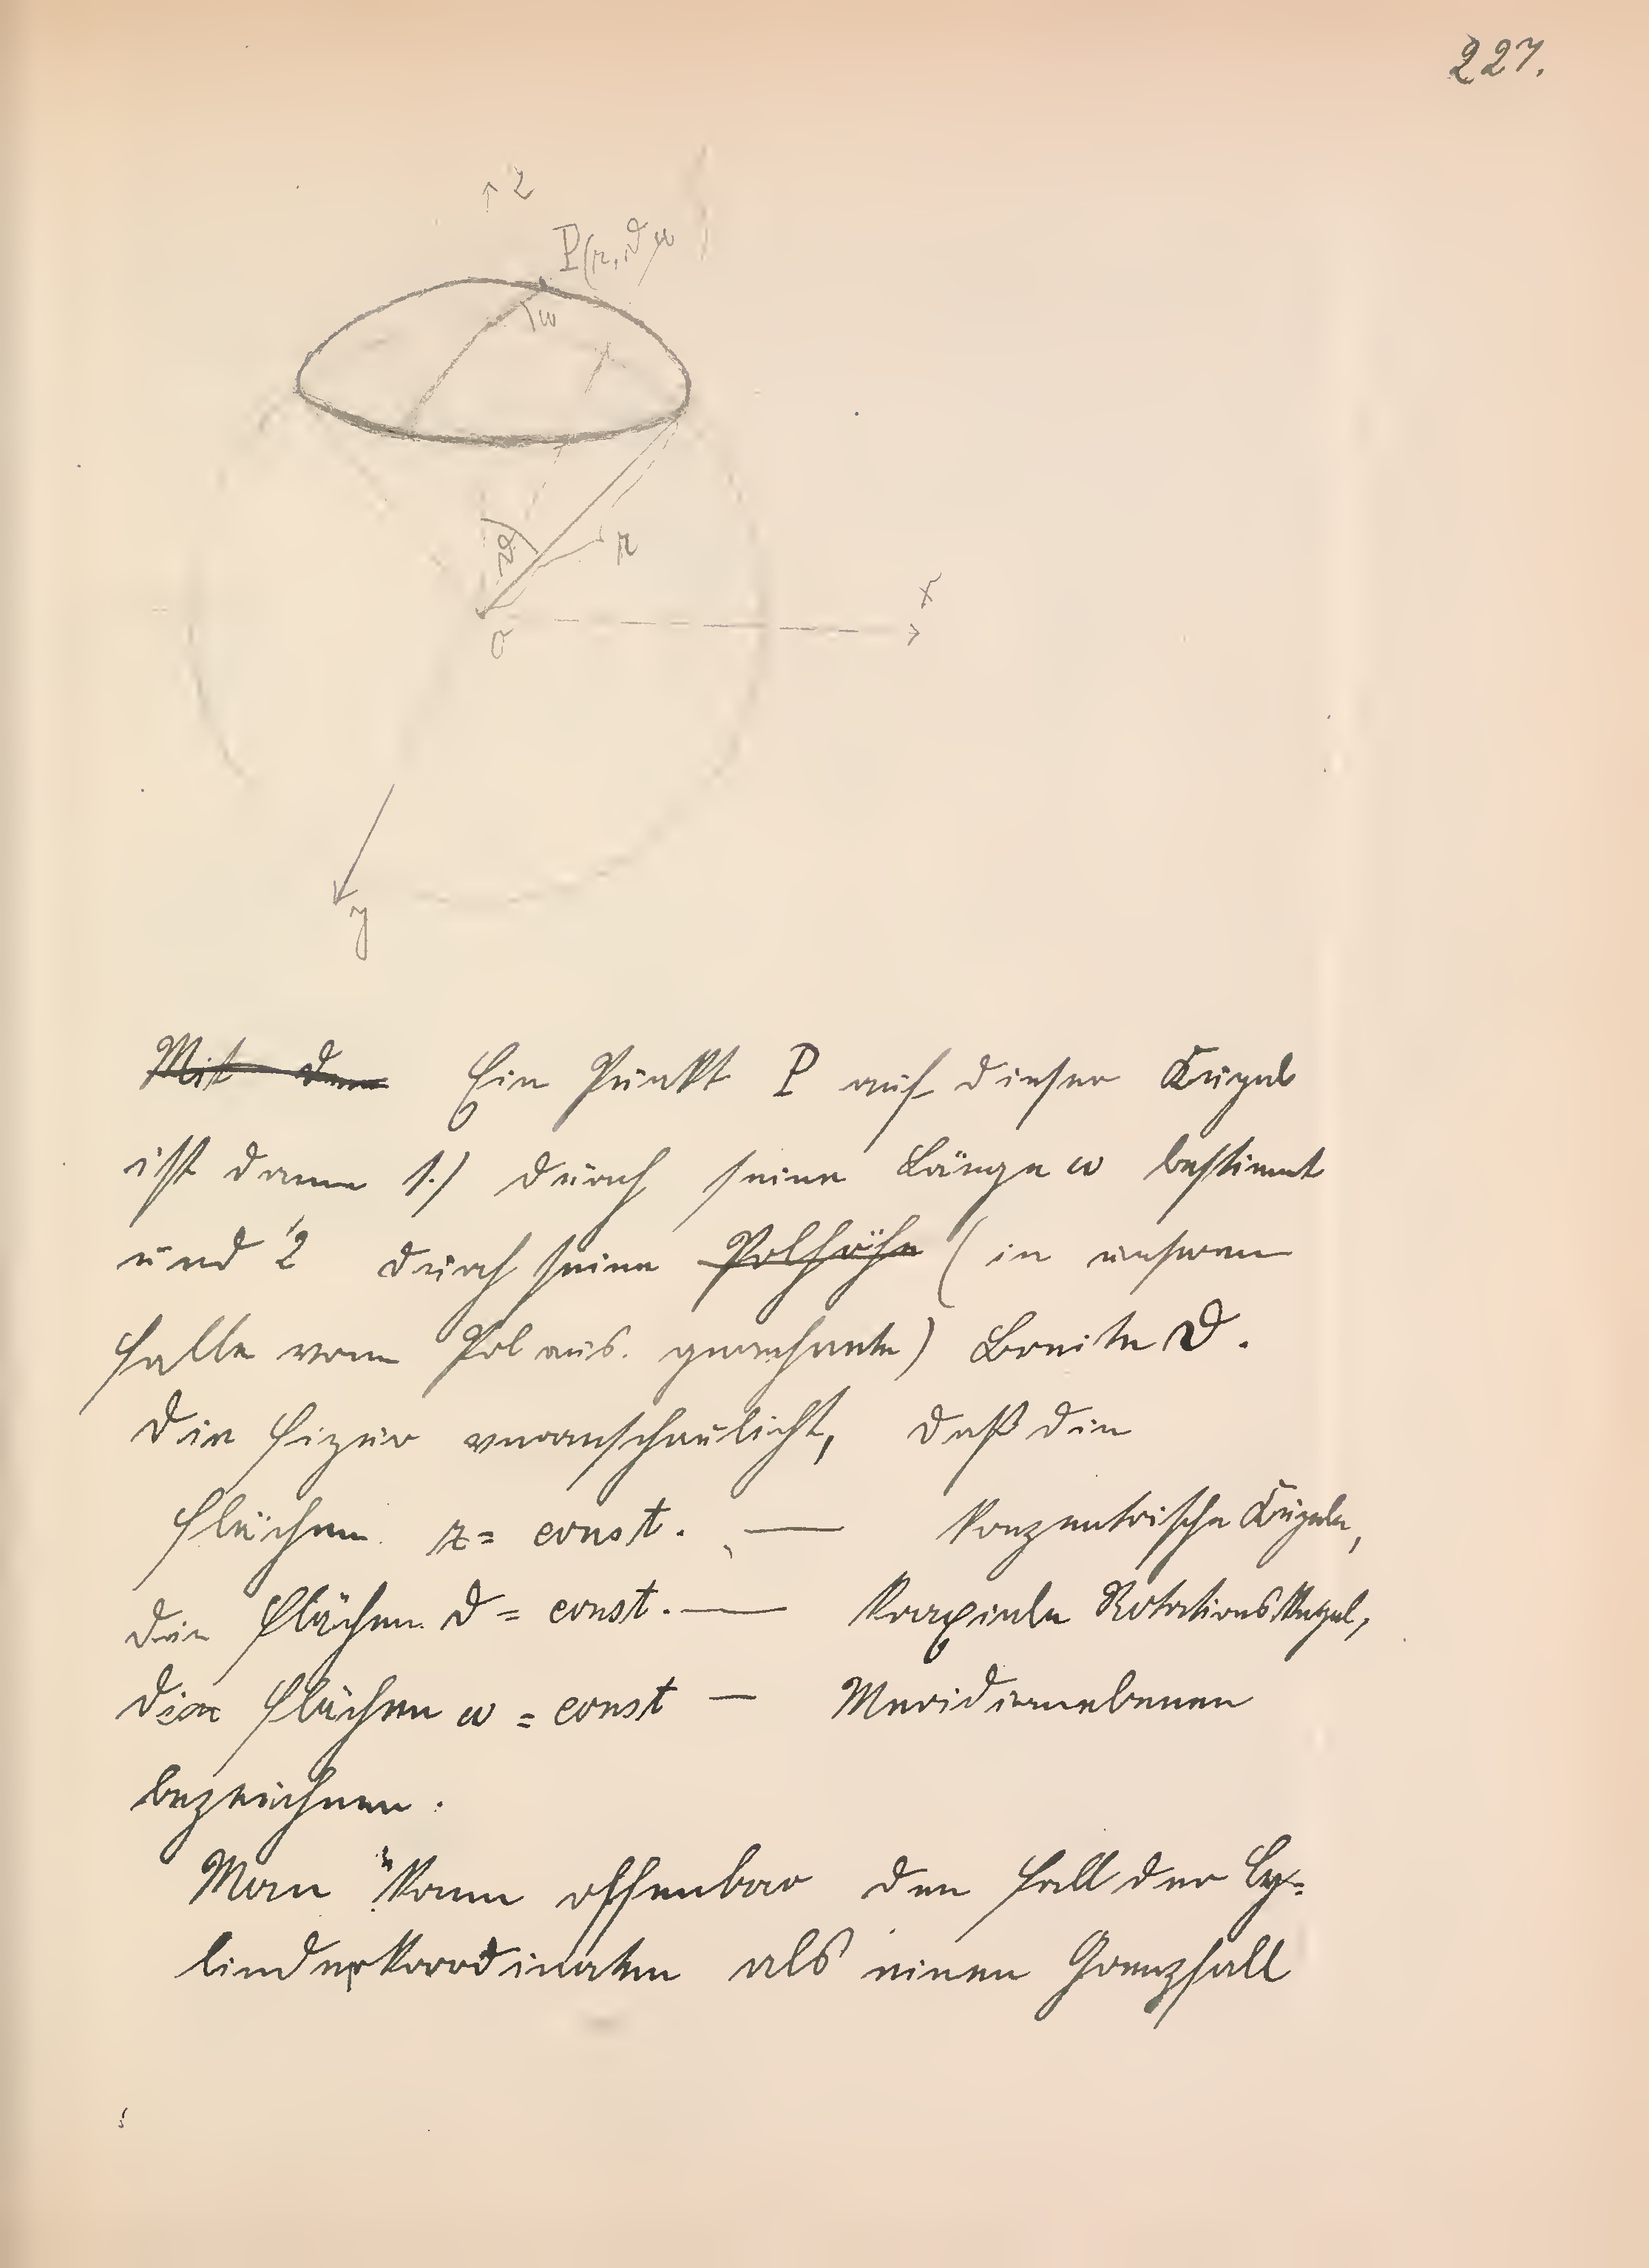 227.
z
P(r,ϑ,ω
ω
ϑ
r
O
x
y
Mit dem Ein Punkt P auf dieser Kugel
ist dann 1.) durch seine Länge ω bestimmt
und 2 durch seine Polhöhe (in unserem
Falle vom Pol aus. gerechnete) Breite ϑ.
Die Figur veranschaulicht, daß die
Flächen r = const. — konzentrische Kugeln,
die Flächen ϑ = const. — koaxiale Rotationskegel,
die Flächen ω = const — Meridianebenen
bezeichnen.
Man kann offenbar den Fall der Cy-
linderkoordinaten als einen Grenzfall